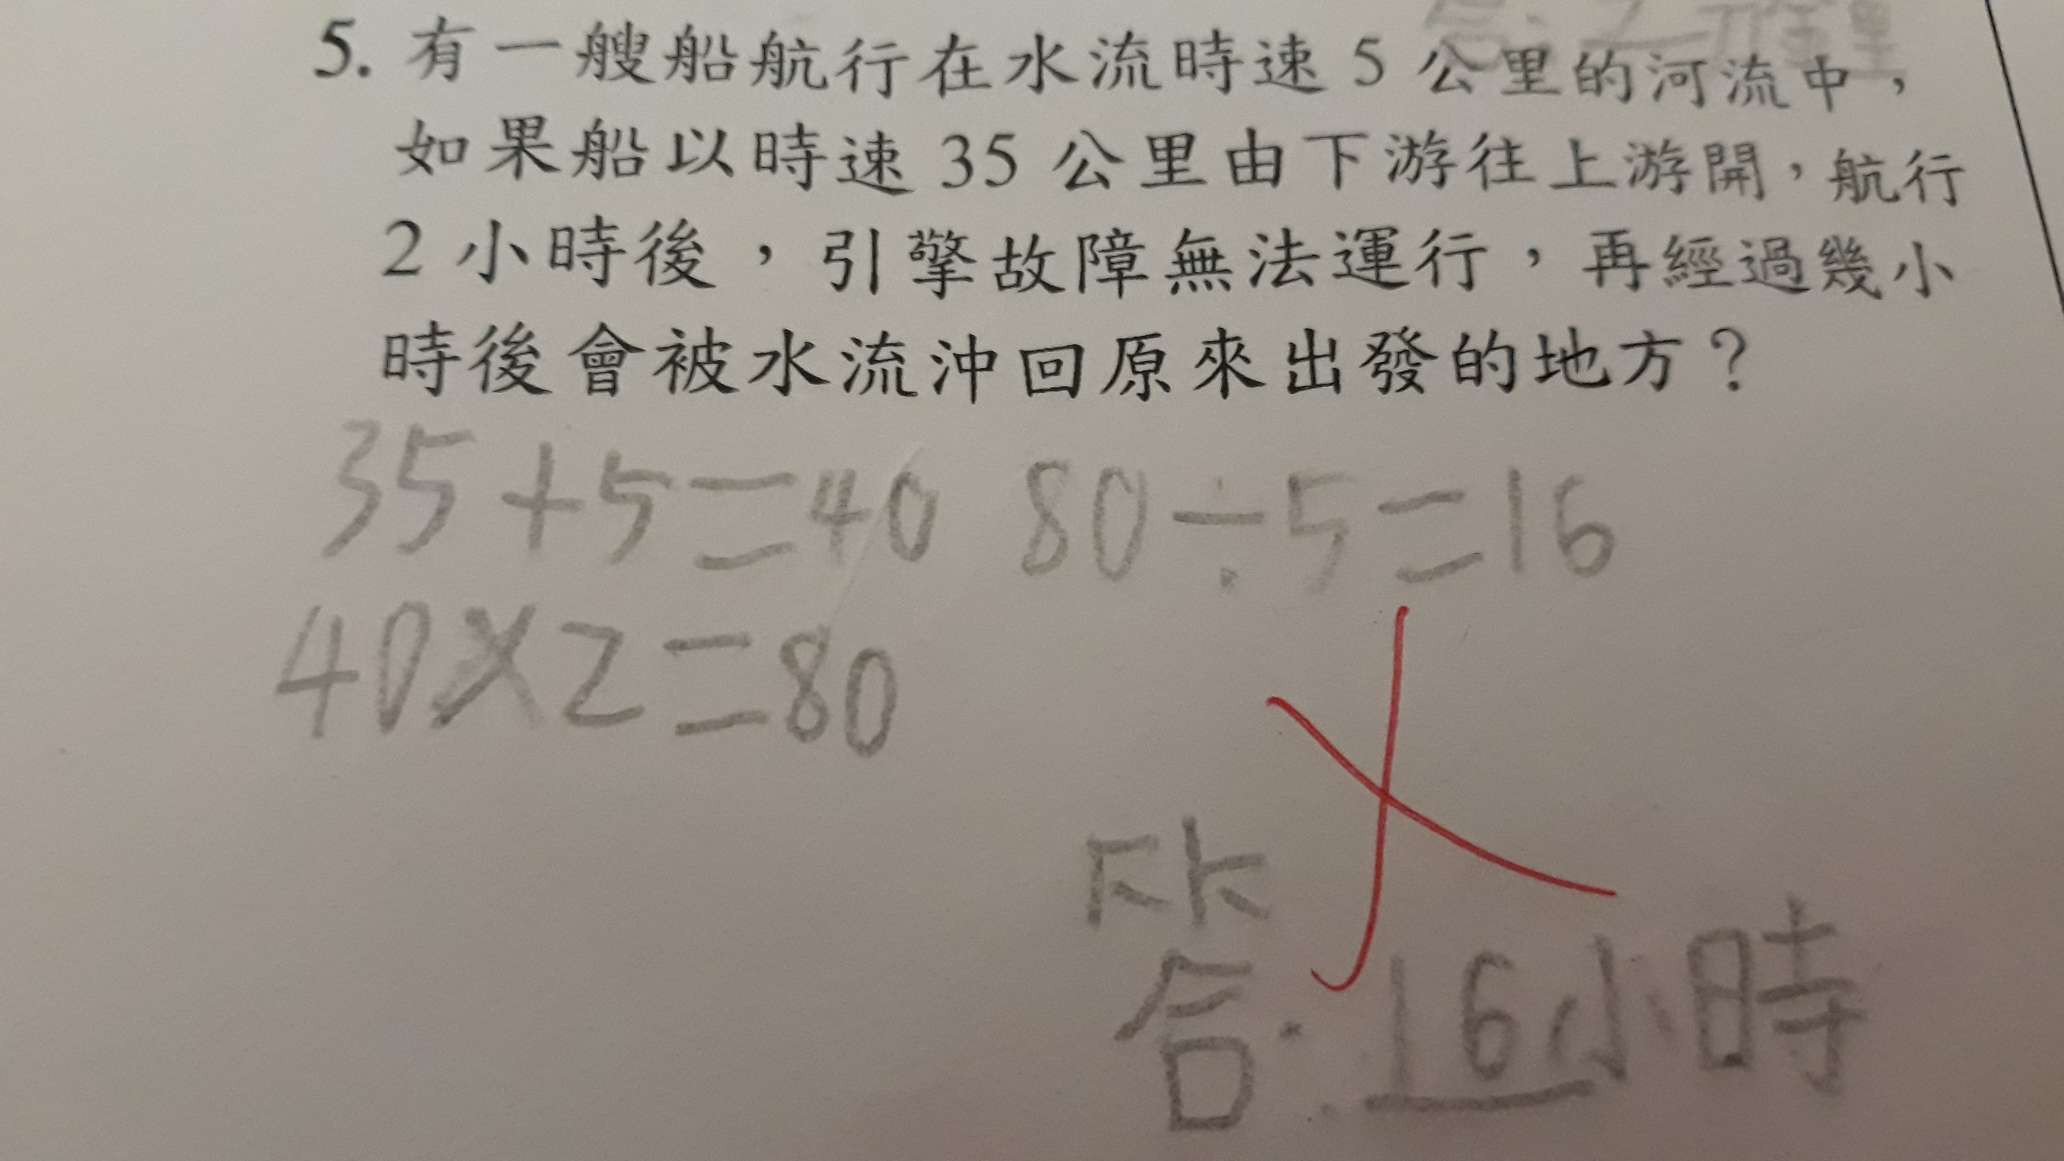 5. 有一艘船航行在水流時速 5 公里的河流中，
如果船以時速 35 公里由下游往上游開，航行
2 小時後，引擎故障無法運行，再經過幾小
時後會被水流沖回原來出發的地方？
35+5=40 80÷5=16
40×2=80
答：16小時